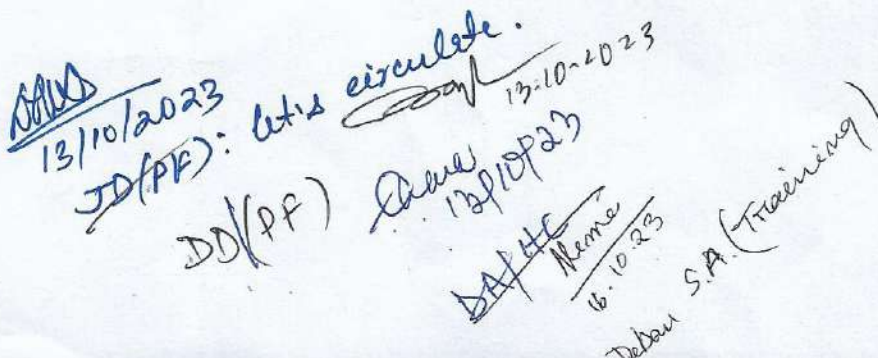 13/10/2023
JD(PF): let's circulate.
13-10-2023
DD(PF)
13/10/23
DA/HC
16.10.23
S.A. (Training)